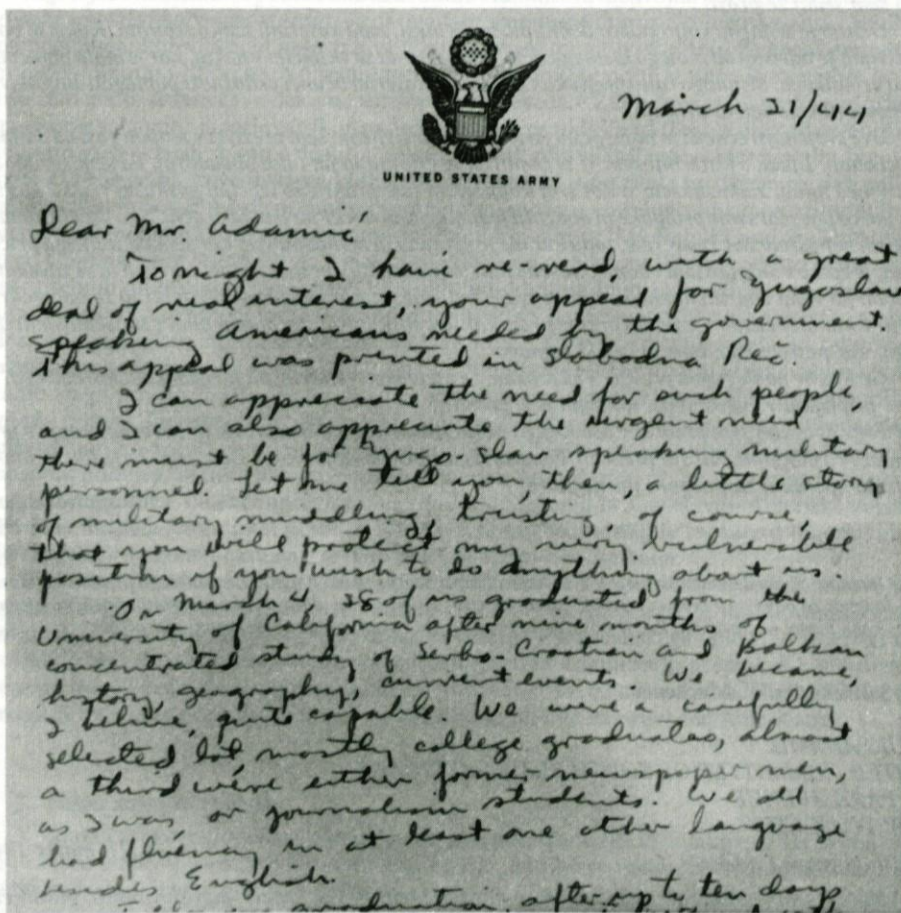 March 21/44
UNITED STATES ARMY
Dear Mr. Adamic
Tonight I have re-read, with a great
deal of real interest, your appeal for Yugoslav
speaking Americans needed by the government.
This appeal was printed in Slobodna Reč.
I can appreciate the need for such people,
and I can also appreciate the urgent need
there must be for Yugo-slav speaking military
personnel. Let me tell you, then, a little story
of military muddling, trusting, of course,
that you will protect my very vulnerable
position if you wish to do anything about us.
On March 4, 28 of us graduated from the
University of California after nine months of
concentrated study of Serbo-Croatian and Balkan
history, geography, current events. We became,
I believe, quite capable. We were a carefully
selected lot, mostly college graduates, almost
a third were either former newspaper men,
as I was, or journalism students. We all
had fluency in at least one other language
besides English.
graduation, after up to ten days